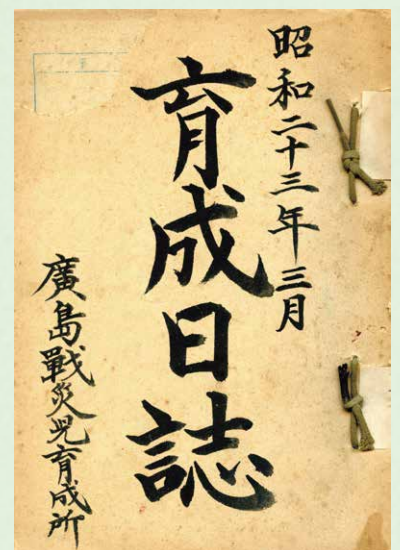 昭和二十三年三月
育成日誌
廣島戰災児育成所